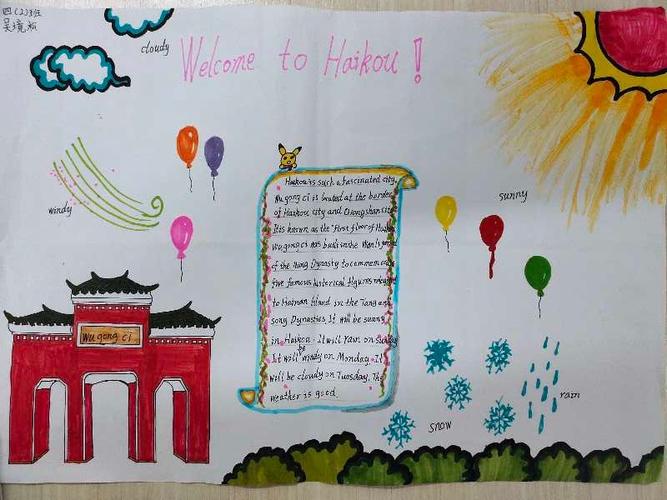 四(2)班
吴境
cloudy
Welcome to Haikou!
windy
sunny
Haikou is such a fascinated city.
Wu gong ci is located at the border
of Haikou city and Qiongshan city.
It is known as the "First floor of
Wu gong ci was built in the Wanli
of the Ming Dynasty to commem
five famous historical figures
to Hainan Island in the Tang and
song Dynasties. It will be sunny
in Haikou. It will rain on
It will be windy on Monday. It
will be cloudy on Tuesday. The
weather is good.
Wu gong ci
rain
snow